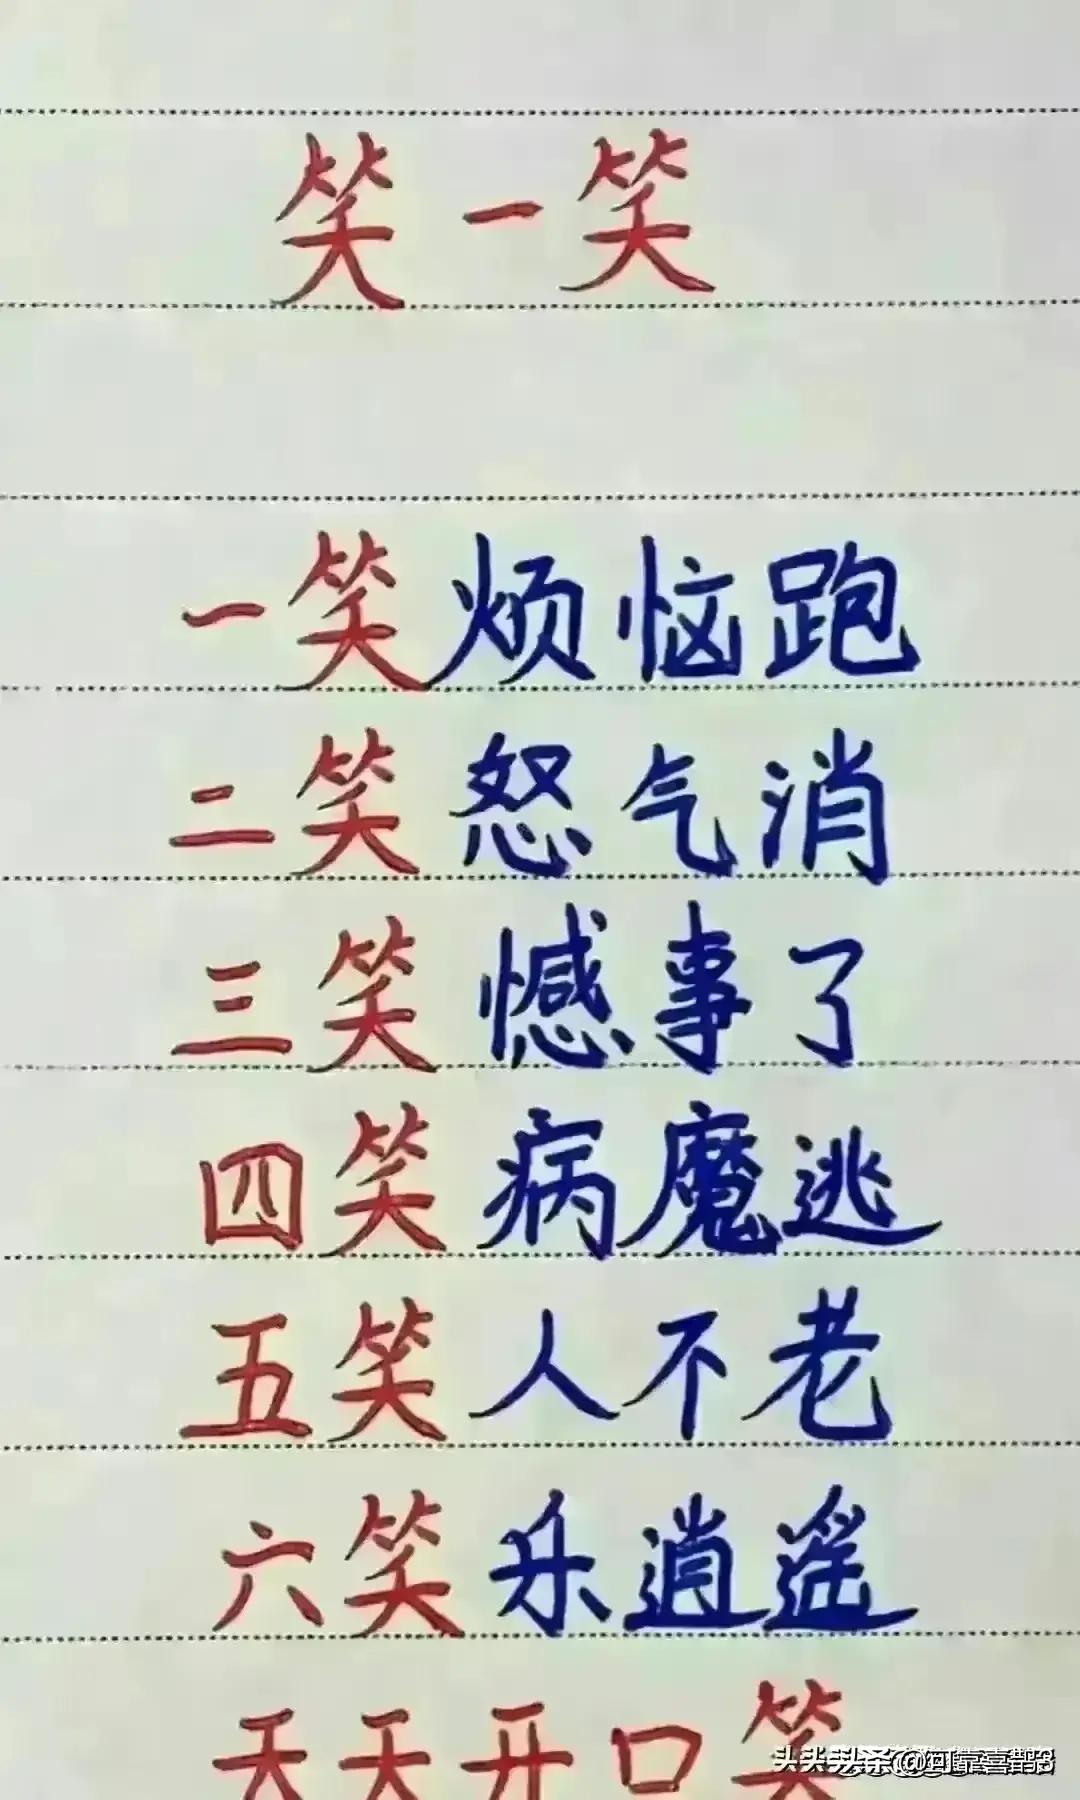 笑一笑
一笑烦恼跑
二笑怒气消
三笑憾事了
四笑病魔逃
五笑人不老
六笑乐逍遥
天天开口笑
头条 @